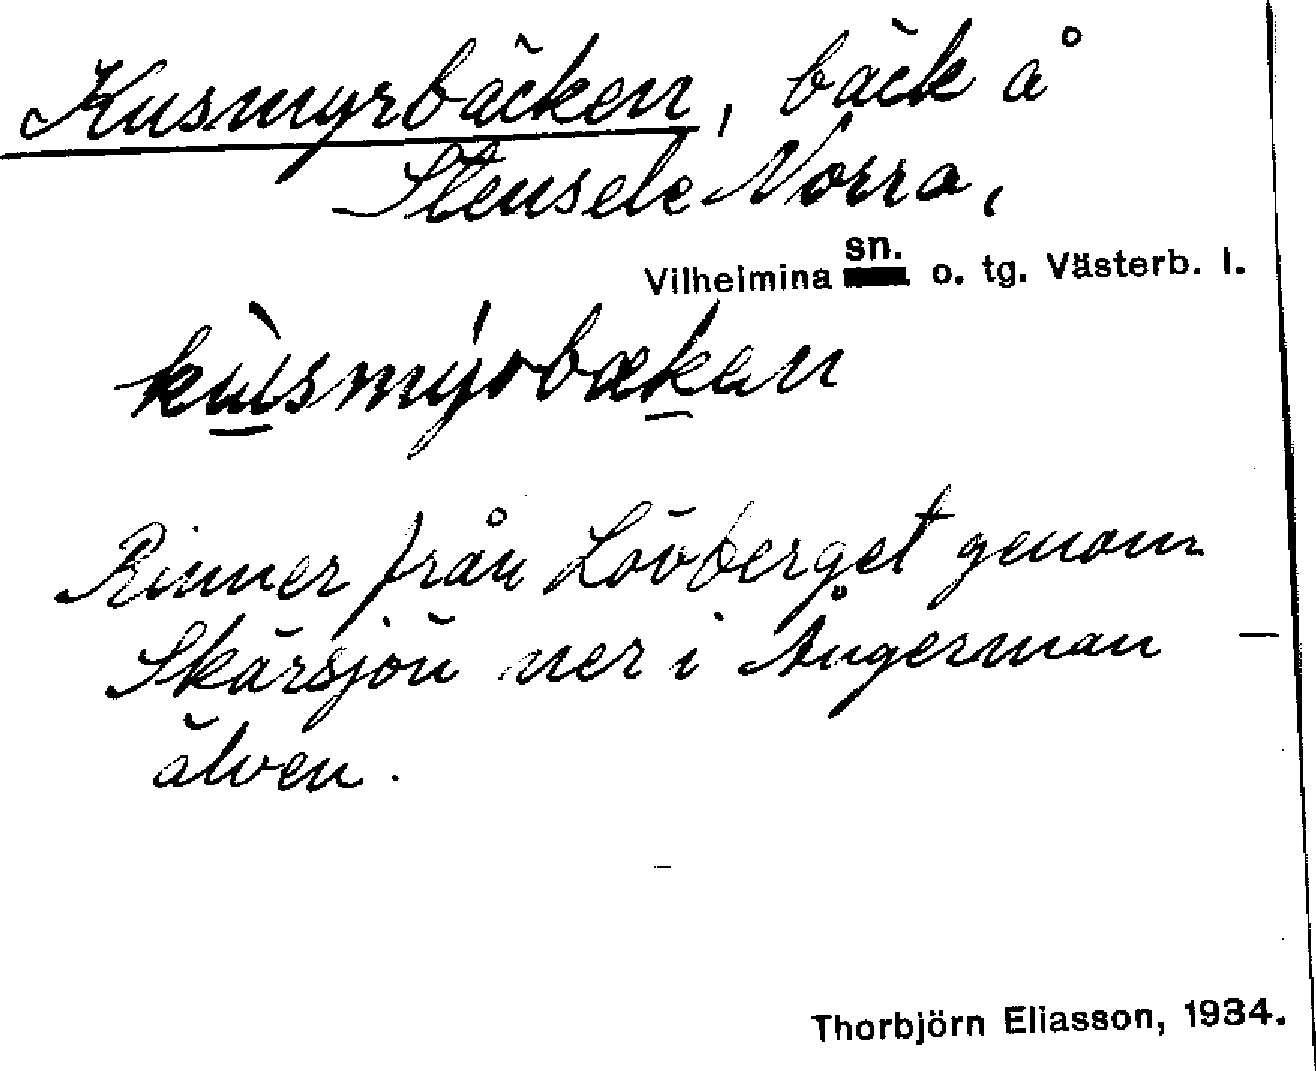 Kusmyrbäcken, bäck å
Stensele Norra,
Vilhelmina sn. o. tg. Västerb. l.
kùsmýrbækan
Rinner från Lövberget genom
Skärsjön ner i Ångerman
älven.
Thorbjörn Eliasson, 1934.